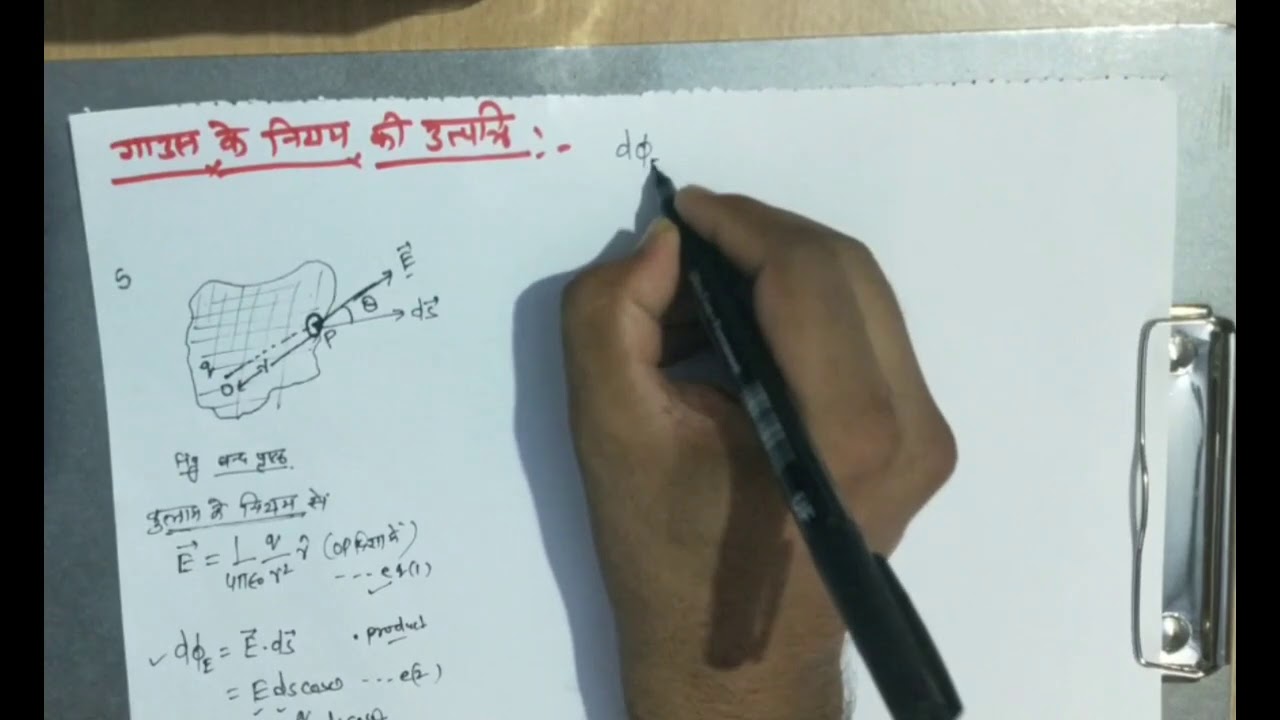 गाउस के नियम की उत्पत्ति :-
dϕ
S
E⃗
θ
ds⃗
P
r
q
O
Fig बन्द पृष्ठ
कुलाम के नियम से
E⃗ = 1/4πε₀ q/r² r̂ (OP दिशा में)
---- eq(1)
dϕ_E = E⃗·ds⃗ • product
= E ds cosθ ---- e(2)